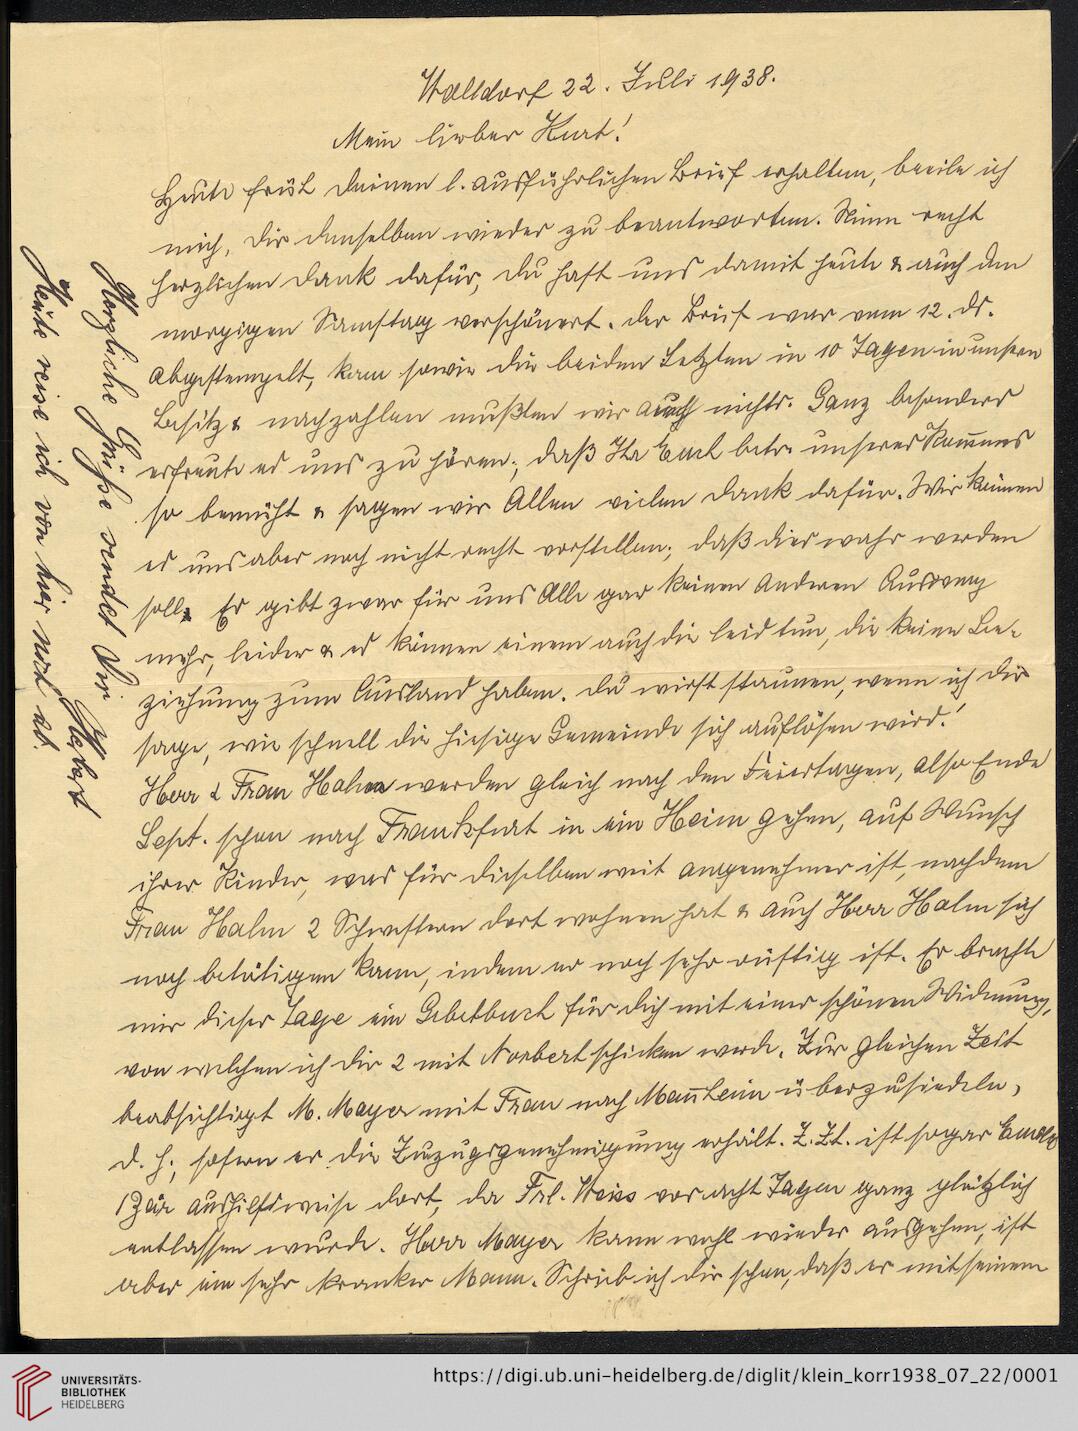 Walldorf 22. Juli 1938.
Mein lieber Kurt!
Heute früh Deinen l. ausführlichen Brief erhalten, beeile ich
mich, Dir denselben wieder zu beantworten. Nimm recht
herzlichen Dank dafür, Du hast uns damit heute & auch den
morgigen Samstag verschönert. Der Brief war vom 12. ds.
abgestempelt, kam sowie die beiden Letzten in 10 Tagen in unsern
Besitz & nachzahlen mußten wir auch nichts. Ganz besonders
erfreute es uns zu hören, daß Ihr Euch betr. unseres Kommens
so bemüht & sagen wir Allen vielen Dank dafür. Wir können
es uns aber noch nicht recht vorstellen, daß dies wahr werden
soll. Es gibt zwar für uns Alle gar keinen anderen Ausweg
mehr, leider & es können einem auch die leid tun, die keine Be-
ziehung zum Ausland haben. Du wirst staunen, wenn ich Dir
sage, wie schnell die hiesige Gemeinde sich auflösen wird!
Herr & Frau Halm werden gleich nach den Feiertagen, also Ende
Sept. schon nach Frankfurt in ein Heim gehen, auf Wunsch
ihrer Kinder, was für dieselben weit angenehmer ist, nachdem
Frau Halm 2 Schwestern dort wohnen hat & auch Herr Halm sich
noch betätigen kann, indem er noch sehr rüstig ist. Er brachte
mir dieser Tage ein Gebetbuch für Dich mit einer schönen Widmung,
von welchen ich Dir 2 mit Norbert schicken werde. Zur gleichen Zeit
beabsichtigt M. Mayer mit Frau nach Mannheim überzusiedeln,
d. h., sofern er die Zuzugsgenehmigung erhält. Z. Zt. ist sogar
aushilfsweise dort, da Frl. Weiss vor acht Tagen ganz plötzlich
entlassen wurde. Herr Mayer kann wohl wieder ausgehen, ist
aber ein sehr kranker Mann. Schrieb ich Dir schon, daß er mit seinem
Herzliche Grüße sendet Dir
Norbert
Heute reise ich von hier noch ab.
UNIVERSITÄTS-
BIBLIOTHEK
HEIDELBERG
https://digi.ub.uni-heidelberg.de/diglit/klein_korr1938_07_22/0001